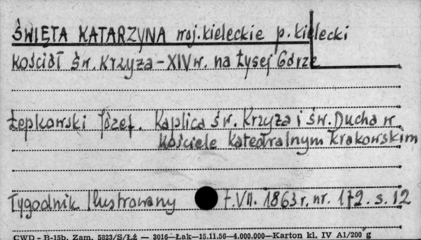 ŚWIĘTA KATARZYNA woj. kieleckie p. kielecki
Kościół Św. Krzyża - XIV w. na Łysej Górze
Łepkowski Józef. Kaplica św. Krzyża i św. Ducha w
Kościele Katedralnym Krakowskim
Tygodnik Ilustrowany t. VII. 1863 r. nr. 172. s. 12
CWD - B-15b. Zam. 5823/S/Łż — 3016—Łak—15.11.56—4.000.000—Karton kl. IV A1/200 g